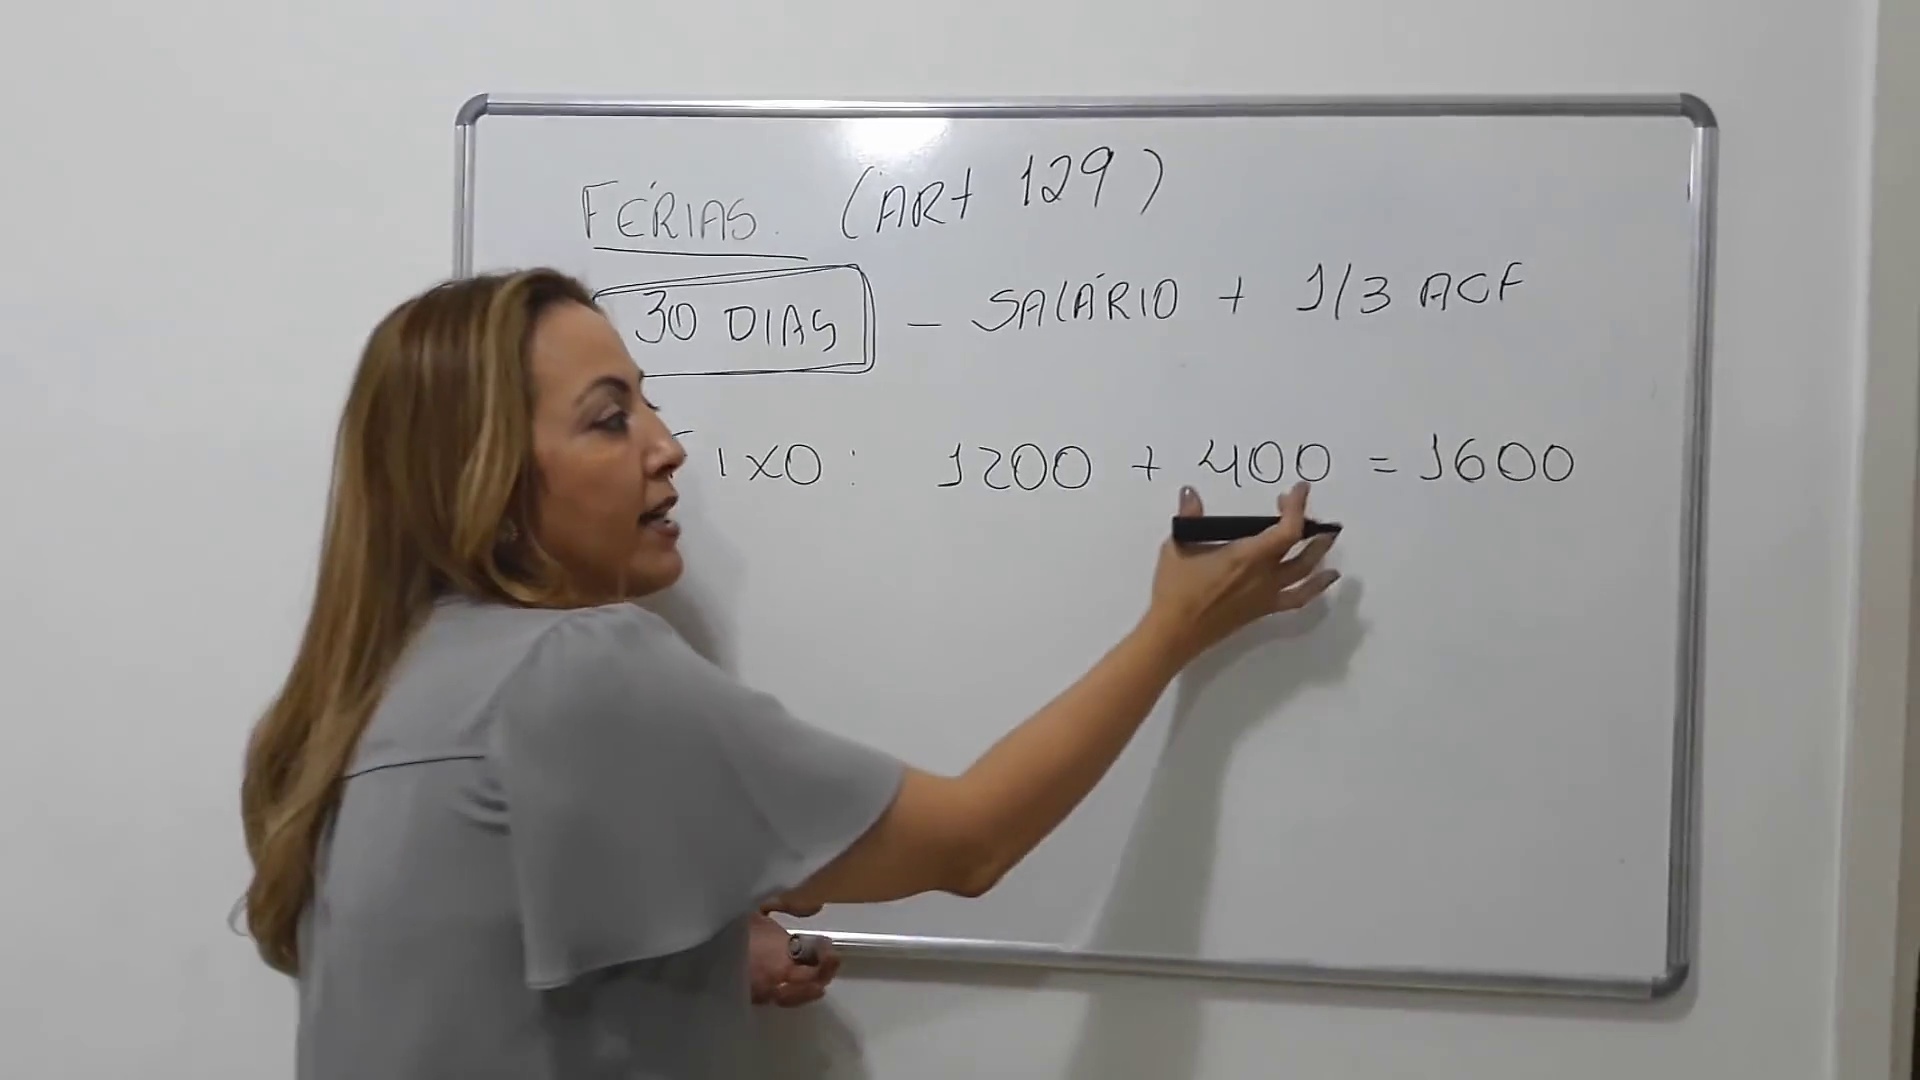 FÉRIAS. (ART 129)
30 DIAS - SALÁRIO + 1/3 ACF
FIXO: 1200 + 400 = 1600